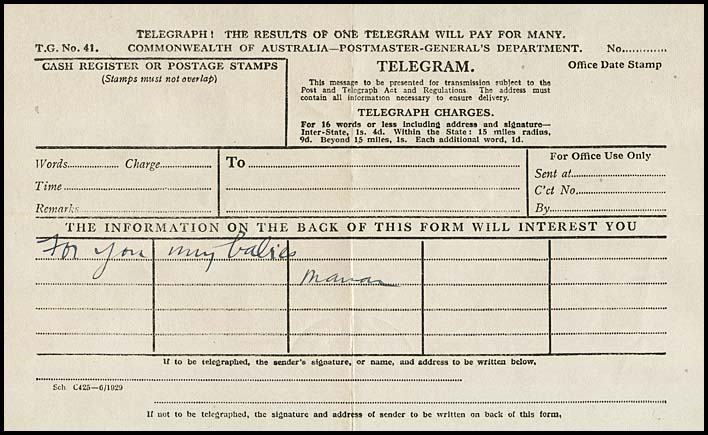 TELEGRAPH! THE RESULTS OF ONE TELEGRAM WILL PAY FOR MANY.
T.G. No. 41. COMMONWEALTH OF AUSTRALIA—POSTMASTER-GENERAL'S DEPARTMENT. No.............
CASH REGISTER OR POSTAGE STAMPS
(Stamps must not overlap)
TELEGRAM.
This message to be presented for transmission subject to the
Post and Telegraph Act and Regulations. The address must
contain all information necessary to ensure delivery.
TELEGRAPH CHARGES.
For 16 words or less including address and signature—
Inter-State, 1s. 4d. Within the State: 15 miles radius,
9d. Beyond 15 miles, 1s. Each additional word, 1d.
Office Date Stamp
Words............... Charge...............
Time...............
Remarks...............
To...............
For Office Use Only
Sent at...............
C'ct No...............
By...............
THE INFORMATION ON THE BACK OF THIS FORM WILL INTEREST YOU
For you my babies
If to be telegraphed, the sender's signature, or name, and address to be written below,
Sch. C425—6/1929
If not to be telegraphed, the signature and address of sender to be written on back of this form,